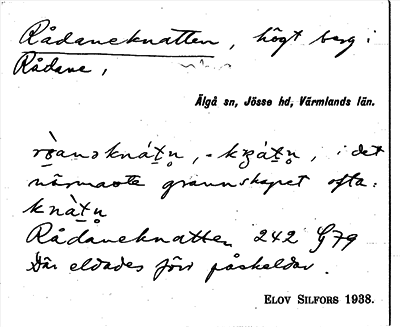 Rådaneknatten, högt berg i
Rådane,
Älgå sn, Jösse hd, Värmlands län.
i det
närmaste grannskapet ofta:
knàtn̥
Rådaneknatten 242 G79
Där eldades förr påskeldar.
ELOV SILFORS 1938.